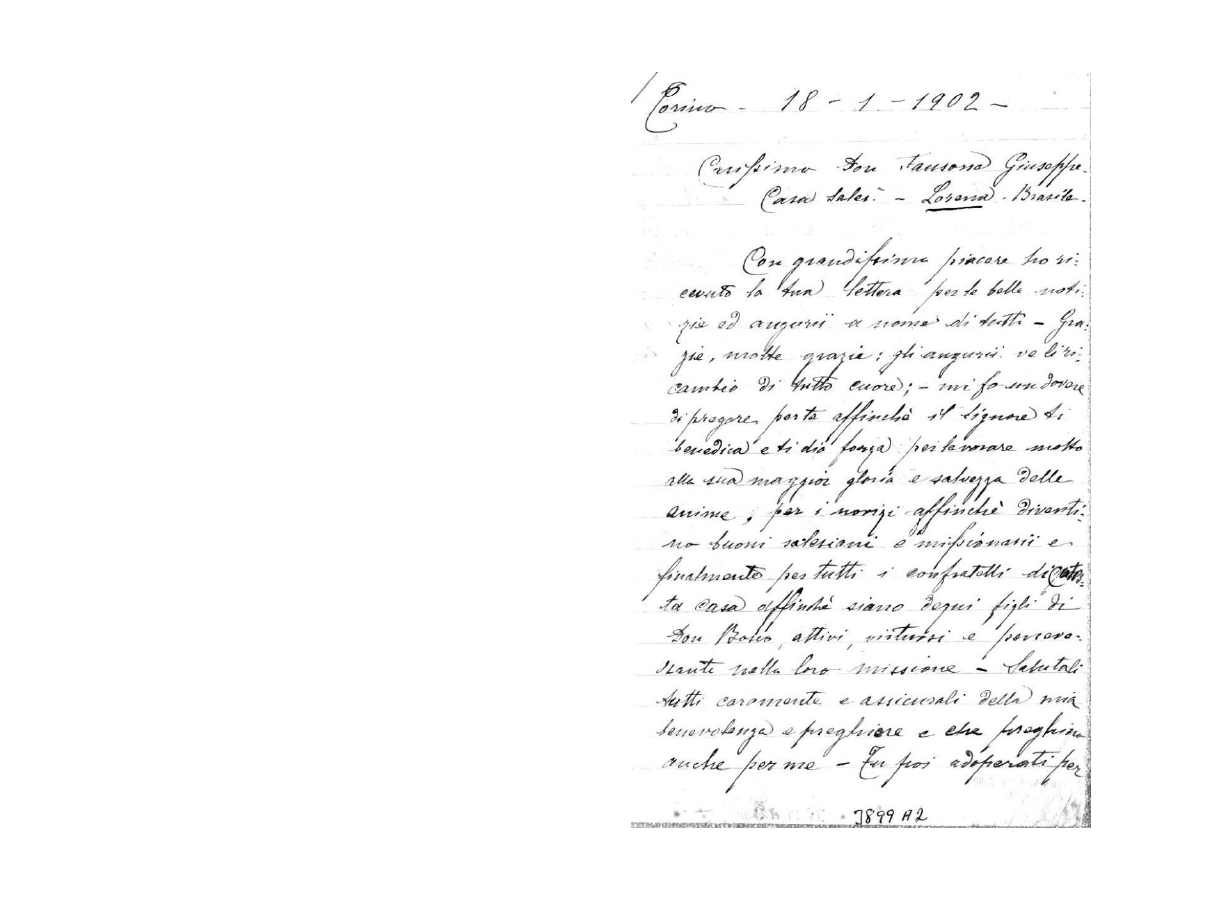 Torino - 18 - 1 - 1902 -
Carissimo Don Fausone Giuseppe
Casa Sales: - Lorena - Brasile -
Con grandissimo piacere ho ri:
cevuto la tua lettera per le belle noti:
zie ed augurii a nome di tutti - Gra:
zie, molte grazie: gli augurii ve li ri:
cambio di tutto cuore; - mi fo un dovere
di pregare per te affinchè il Signore ti
benedica e ti dia forza per lavorare molto
alla sua maggior gloria e salvezza delle
anime, per i novizi affinchè diventi:
no buoni salesiani e missionarii e
finalmente per tutti i confratelli di
ta casa affinchè siano degni figli di
Don Bosco, attivi, virtuosi e perseve:
ranti nella loro missione - Salutali
tutti caramente e assicurali della mia
benevolenza e preghiere e che preghino
anche per me - Tu poi adoperati per
J899 A2